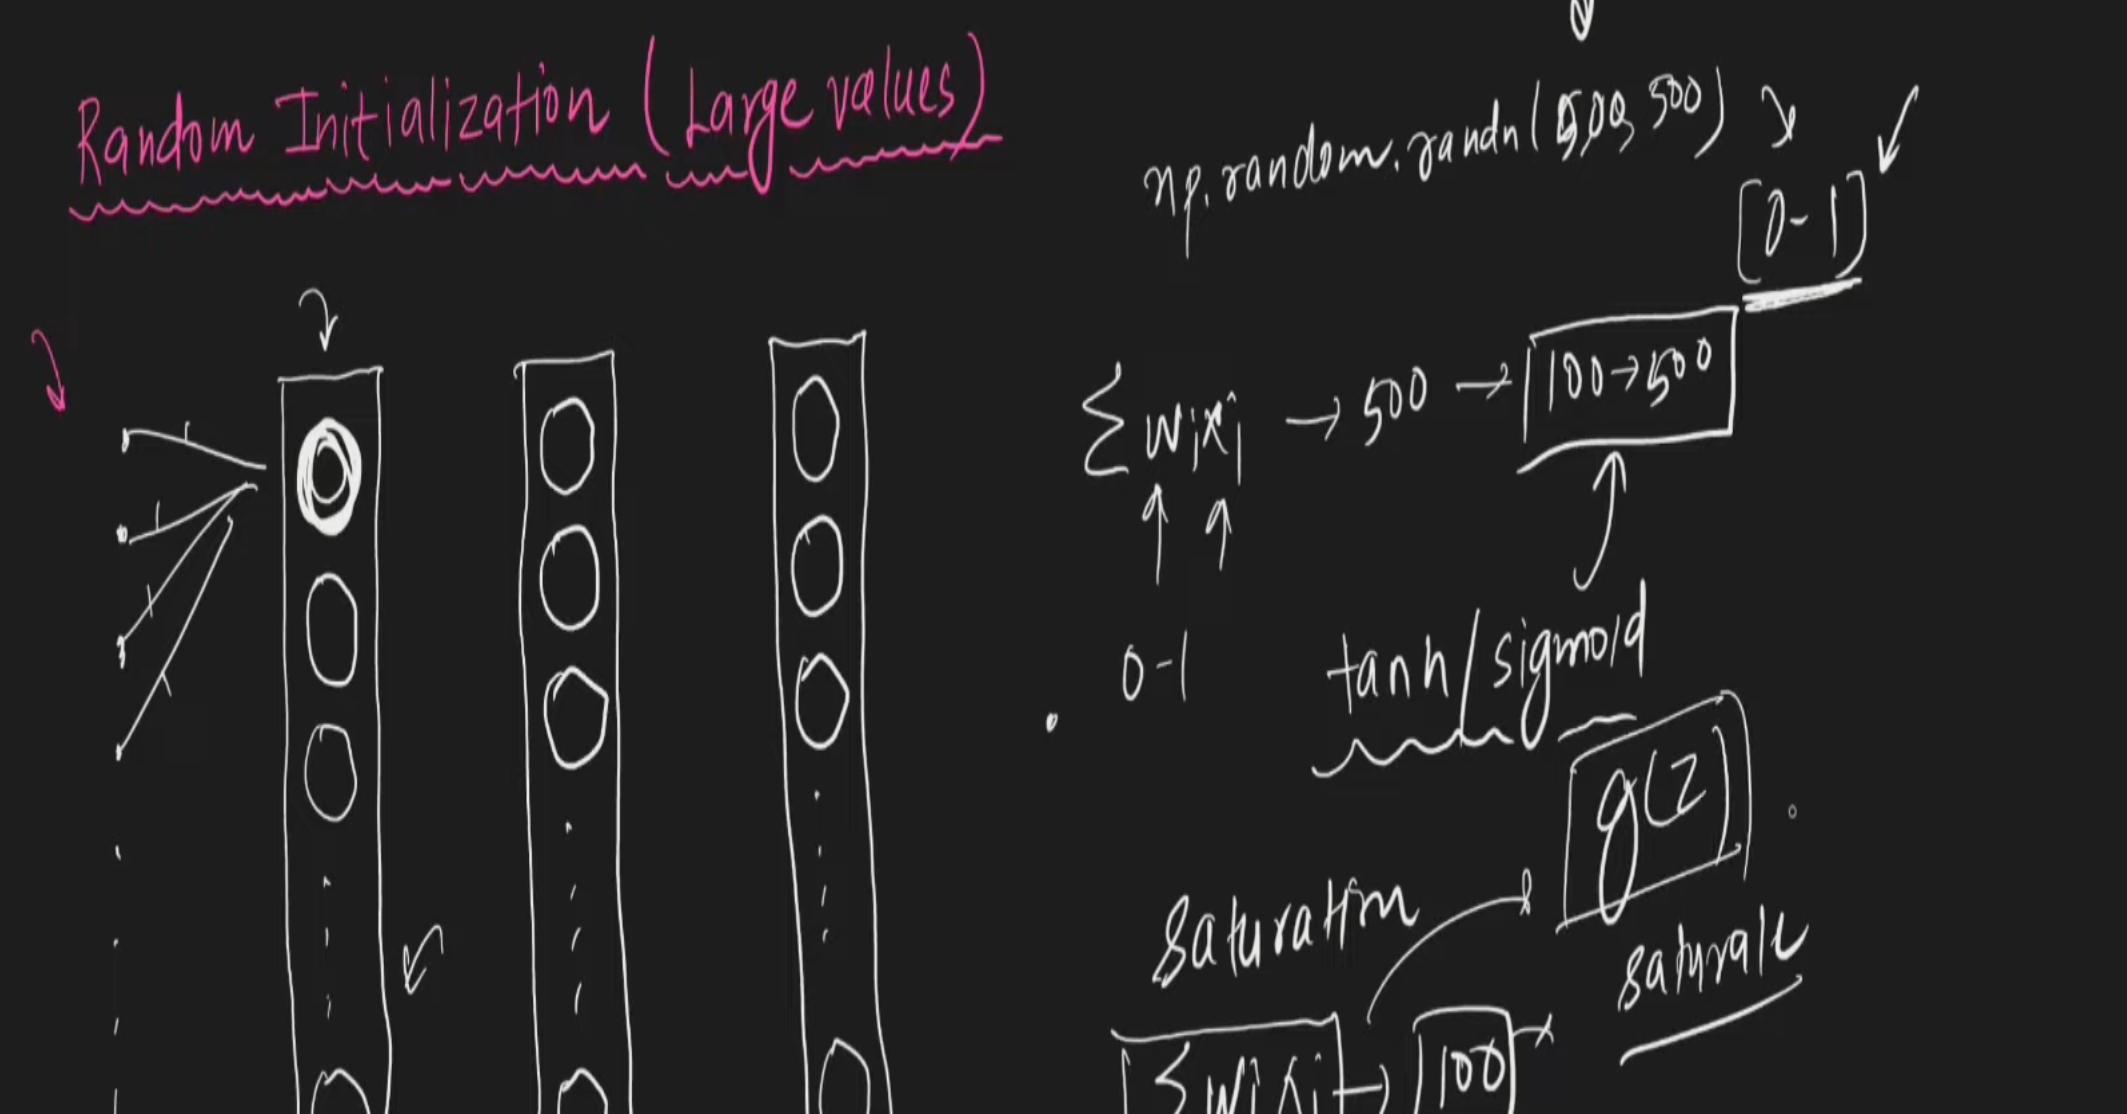 Random Initialization (Large values)
np.random.randn(500, 500)
[0-1]
Σ wixi → 500 → 100→500
0-1
tanh/sigmoid
g(z)
saturation
saturate
Σwixi → 100